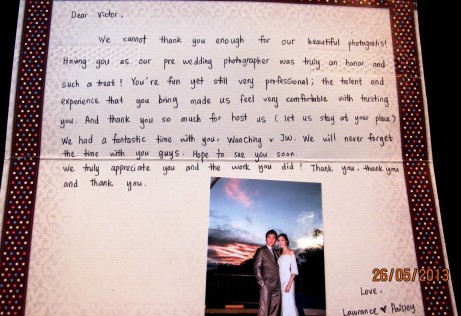 Dear Victor,
We cannot thank you enough for our beautiful photographs!
Having you as our pre wedding photographer was truly an honor and
such a treat! You're fun yet still very professional; the talent and
experience that you bring made us feel very comfortable with trusting
you. And thank you so much for host us (let us stay at your place)
We had a fantastic time with you, WanChing & Jw. We will never forget
the time with you guys. Hope to see you soon.
We truly appreciate you and the work you did! Thank you, thank you
and Thank you.
26/05/2013
Love,
Lawrance ♥ Paisley